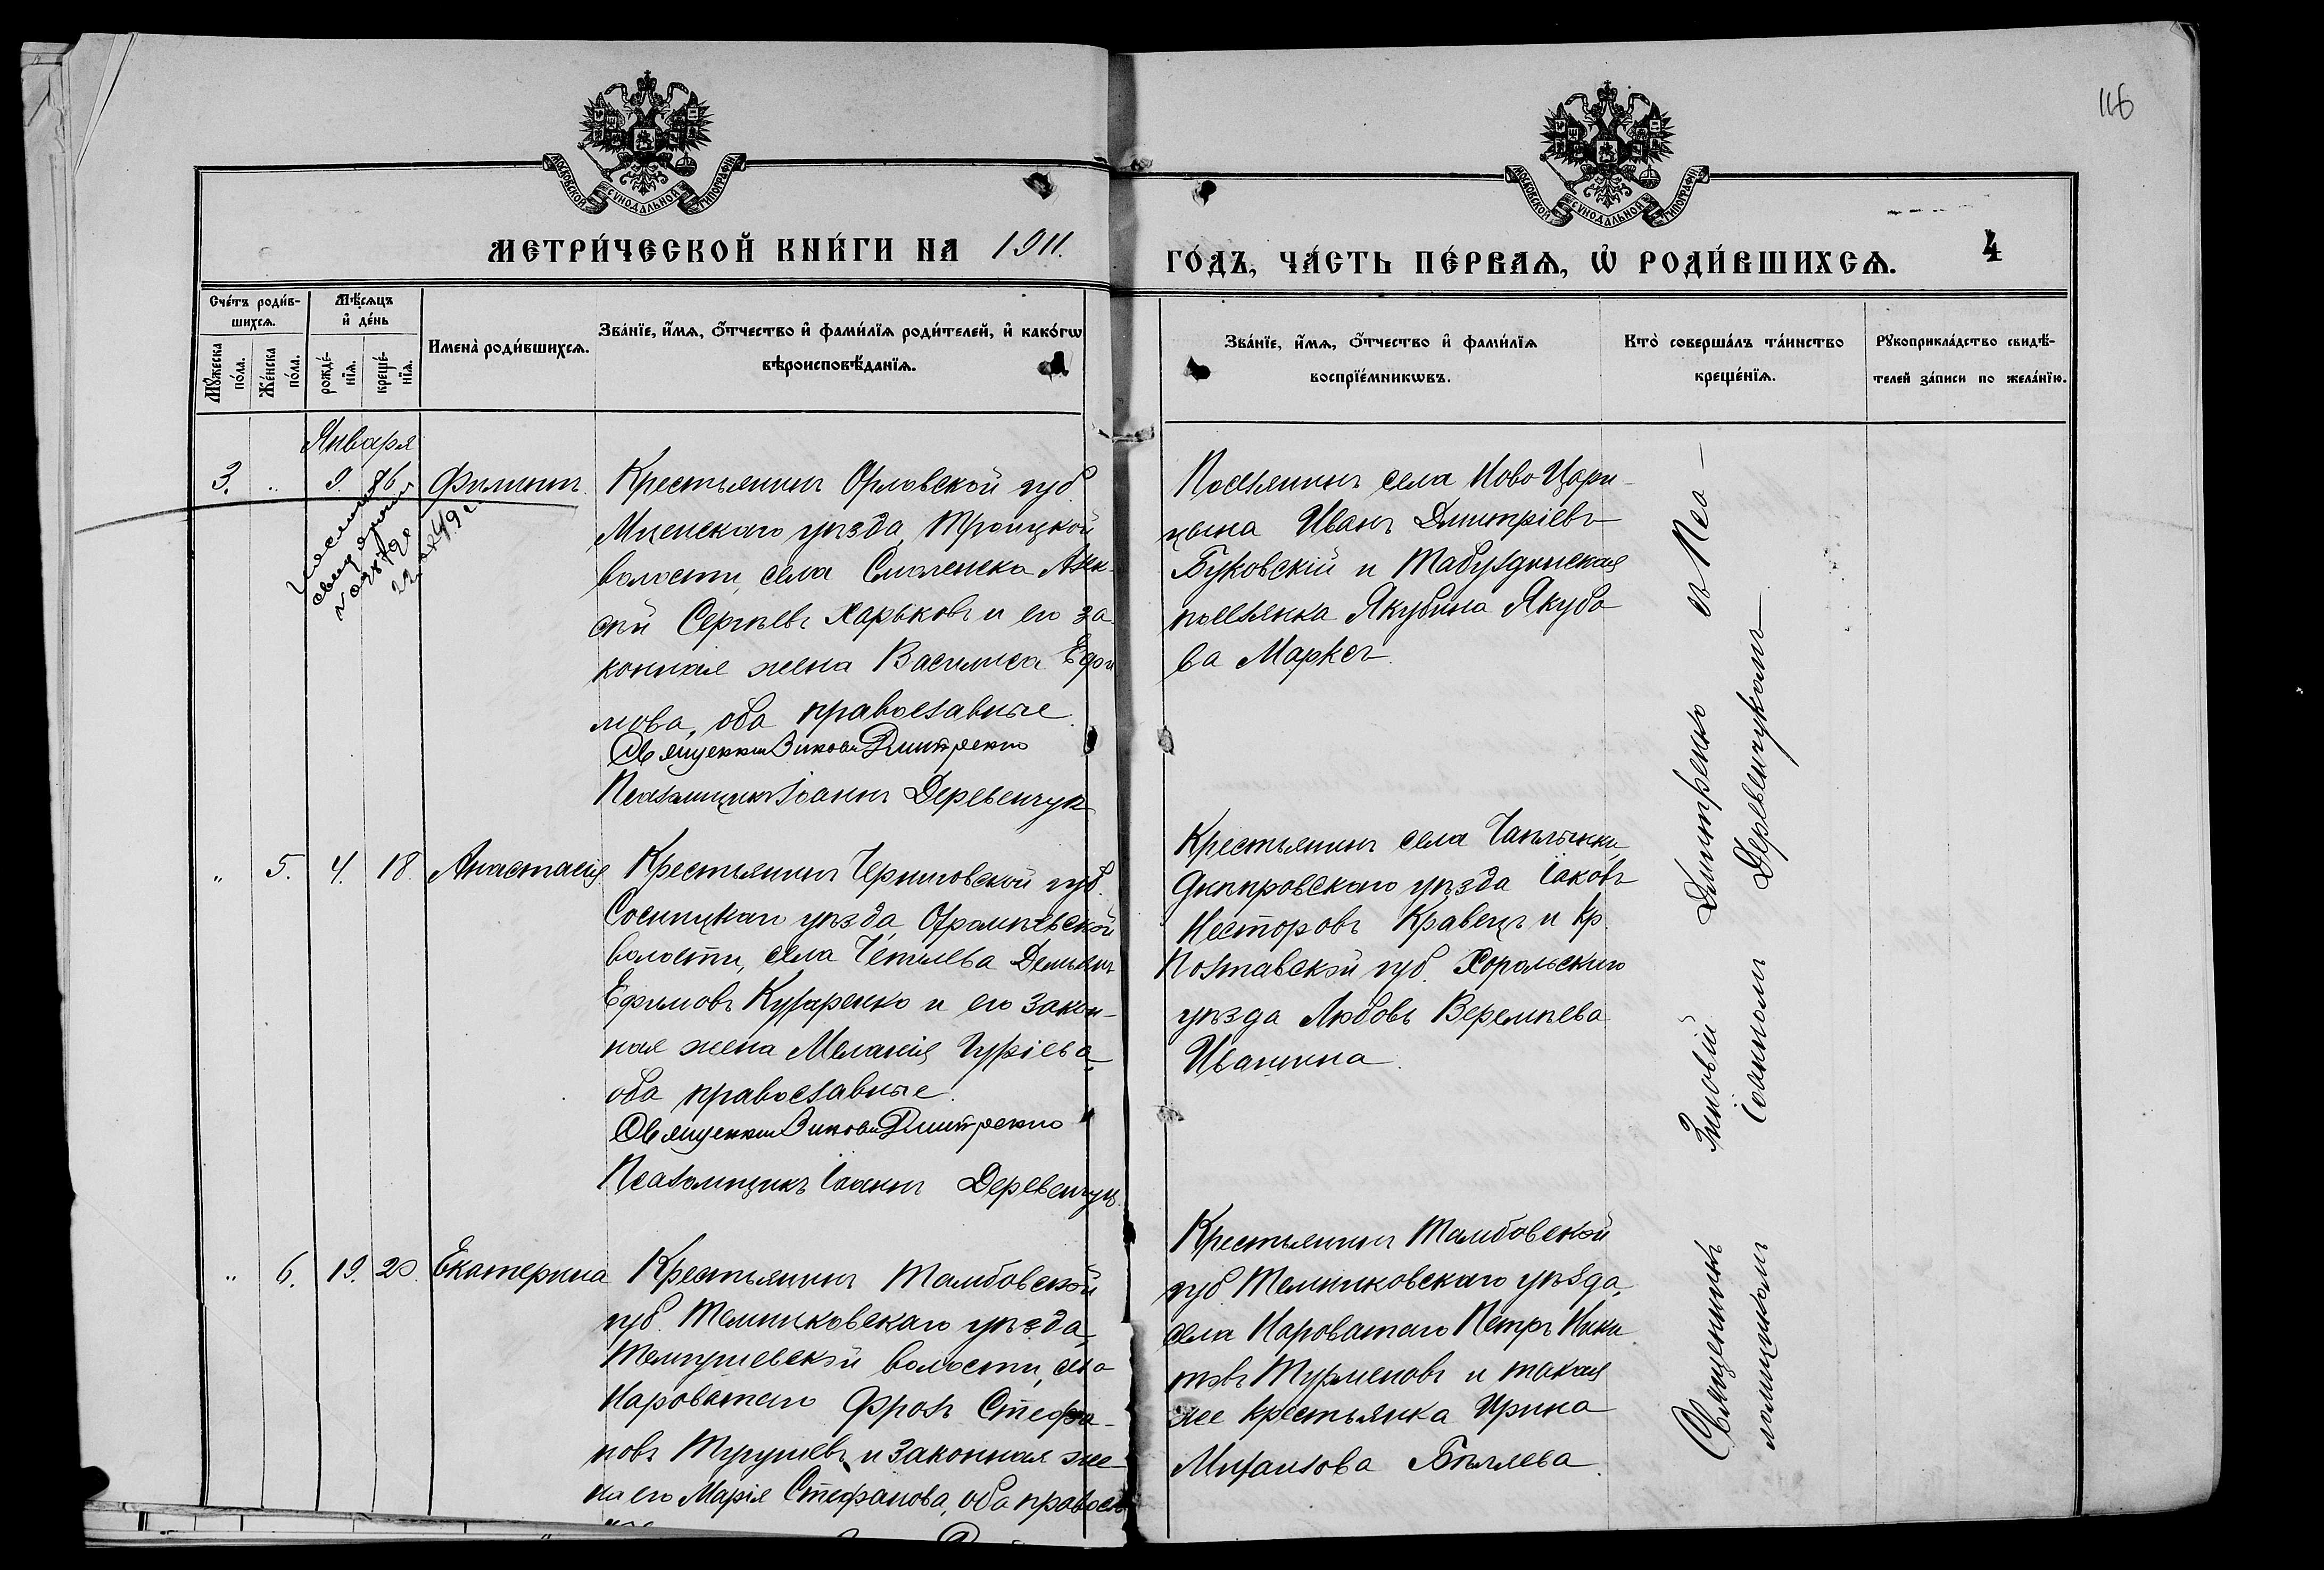 116
МОСКОВСКОЙ СѴНОДАЛЬНОЙ ТИПОГРАФІИ
МОСКОВСКОЙ СѴНОДАЛЬНОЙ ТИПОГРАФІИ
МЕТРИ́ЧЕСКОЙ КНИ́ГИ НА 1911.
ГО́ДЪ, ЧА́СТЬ ПЕ́РВАѦ, Ѡ҆ РОДИ́ВШИХСѦ. 4
Сче́тъ роди́в-
шихсѧ.
Мꙋ́жеска
по́ла.
Же́нска
по́ла.
Мѣ́сѧцъ
и҆ де́нь
рожде́-
нїѧ.
креще́-
нїѧ.
Имена̀ роди́вшихсѧ.
Зва́нїе, и҆́мѧ, ѻ҆́тчество и҆ фами́лїѧ роди́телей, и҆ како́гѡ
вѣроисповѣ́данїѧ.
Зва́нїе, и҆́мѧ, ѻ҆́тчество и҆ фами́лїѧ
воспрїе́мникѡвъ.
Кто̀ соверша́лъ та́инство
креще́нїѧ.
Рꙋкоприкла́дство свидѣ́-
телей за́писи по жела́нїю.
Января
3. " 9. 16 Филиппъ.
Крестьянинъ Орловской губ.
Мценскаго уѣзда, Троицкой
волости, села Смоленска Алек-
сѣй Сергѣевъ Харьковъ и его за-
конная жена Василиса Ефи
мова, оба православные.
Священникъ Зиновій Дмитренко
Псаломщикъ Іоаннъ Деревенчук
Поселянинъ села Ново Цари-
цына Иванъ Дмитріевъ
Буковскій и Табулдинская
поселянка Якубина Якубо-
ва Маркеръ.
" 5. 4. 18. Анастасія
Крестьянинъ Черниговской губ.
Сосницкаго уѣзда,
волости, села Демьянъ
Ефимовъ Кухаренко и его закон-
ная жена Меланія Гуріева,
оба православные.
Священникъ Зиновій Дмитренко
Псаломщикъ Іоаннъ Деревенчук
Крестьянинъ села Чаплинки,
Днѣпровскаго уѣзда Іаковъ
Несторовъ Кравецъ и кр.
Полтавской губ. Хорольскаго
уѣзда Любовь Веремѣева
Ивашина.
" 6. 19. 20. Екатерина
Крестьянинъ Тамбовской
губ. Темниковскаго уѣзда,
волости, села
Нароватаго Фролъ Стефа-
новъ и законная же-
на его Марія Стефанова, оба правосл
Крестьянинъ Тамбовской
губ. Темниковскаго уѣзда,
села Нароватаго Петръ Ники
товъ Турленовъ и такая
же крестьянка Ирина
Михаилова Бѣляева.
Священникъ Зиновій Дмитренко съ Пса-
ломщикомъ Іоанномъ Деревенчукомъ